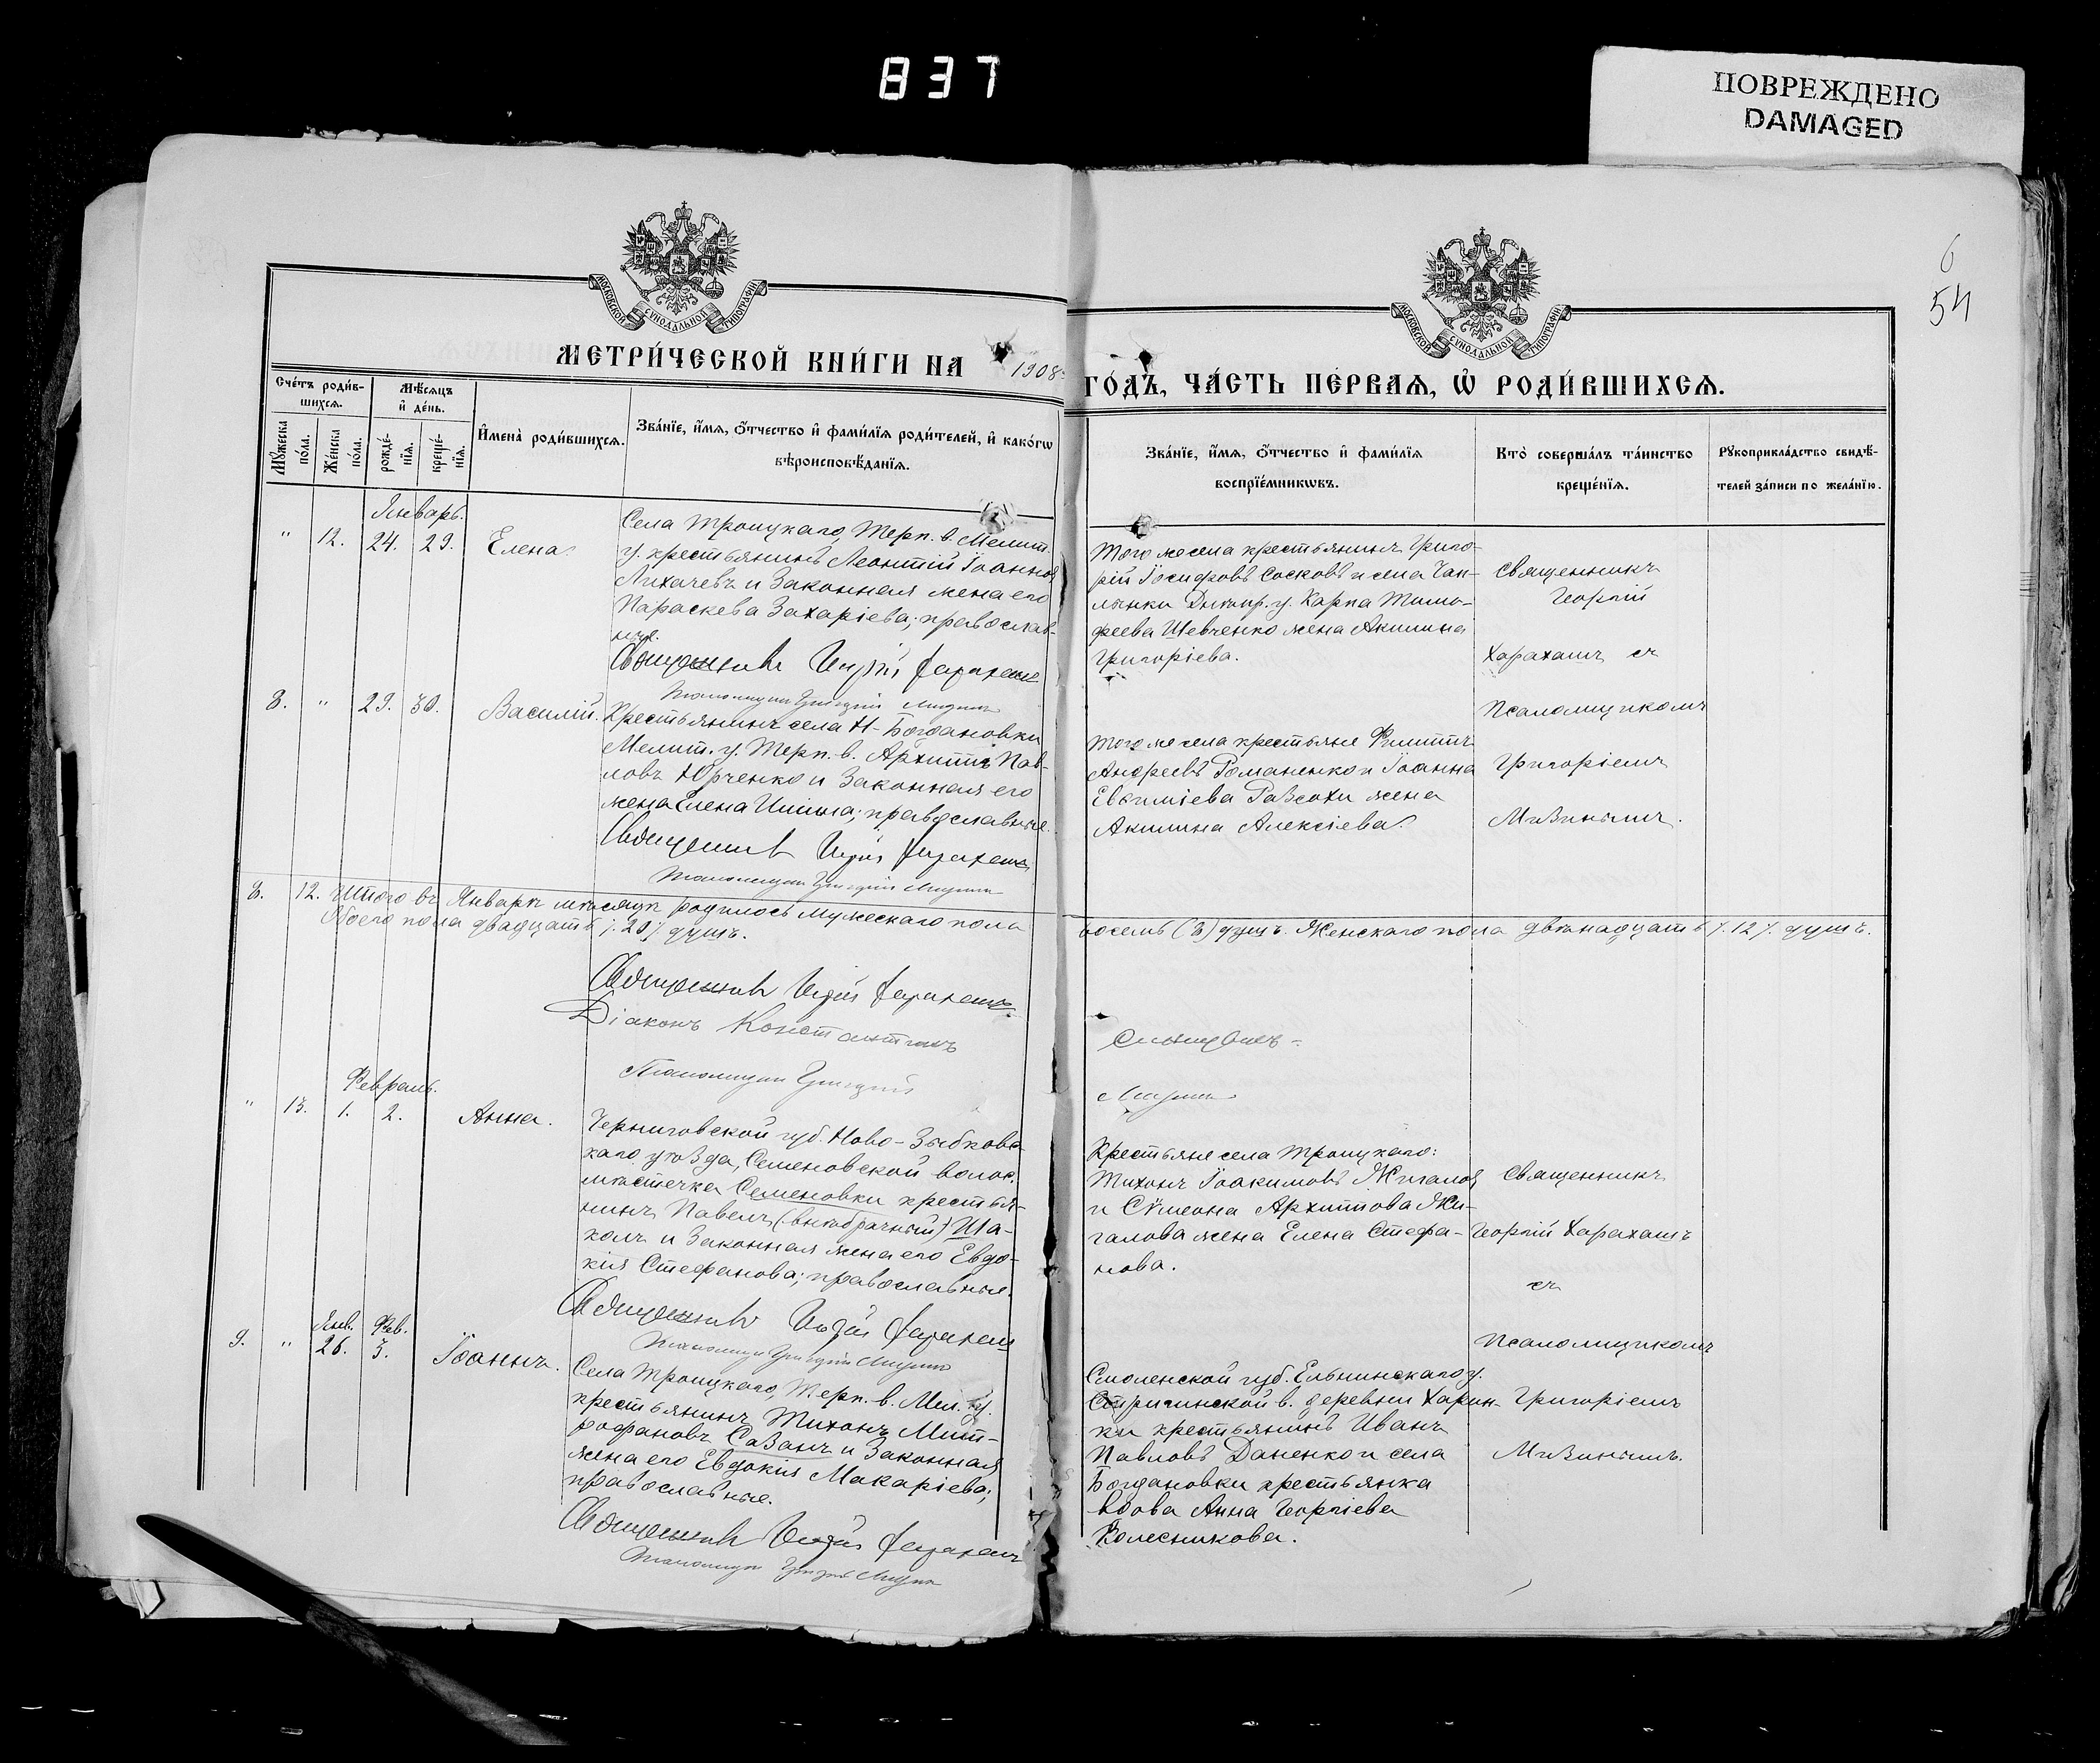 837
ПОВРЕЖДЕНО
DAMAGED
6
54
МОСКОВСКОЙ СѴНОДАЛЬНОЙ ТИПОГРАФІИ
МОСКОВСКОЙ СѴНОДАЛЬНОЙ ТИПОГРАФІИ
МЕТРИ́ЧЕСКОЙ КНИ́ГИ НА 1908 ГО́ДЪ, ЧА́СТЬ ПЕ́РВАѦ, Ѡ҆ РОДИ́ВШИХСѦ.
Сче́тъ роди́в-
шихсѧ.
Мѣ́сѧцъ
и҆ де́нь.
Мꙋ́жеска по́ла.
Же́нска по́ла.
рожде́-
нїѧ.
креще́-
нїѧ.
И҆мена̀ роди́вшихсѧ.
Зва́нїе, и҆́мѧ, ѻ҆́тчество и҆ фами́лїѧ роди́телей, и҆ како́гѡ
вѣроисповѣ́данїѧ.
Зва́нїе, и҆́мѧ, ѻ҆́тчество и҆ фами́лїѧ
воспрїе́мникѡвъ.
Кто̀ соверша́лъ та́инство
креще́нїѧ.
Рꙋкоприкла́дство свидѣ́-
телей за́писи по жела́нїю.
Январь.
" 12. 24. 29. Елена.
Села Троицкаго, Терп. в. Мелит.
у. крестьянинъ Леонтій Іоанновъ
Лихачевъ и законная жена его
Параскева Захаріева; православ-
ные.
Священникъ Георгій Харахашъ
Псаломщикъ Григорій Мизинъ
Того же села крестьянинъ Григо-
рій Іосифовъ Сосковъ и села Чап-
лынки Днѣпр. у. Карпа Тимо-
феева Шевченко жена Акилина
Григоріева.
Священникъ
Георгій
Харахашъ съ
Псаломщикомъ
Григоріемъ
Мизинымъ.
8. " 29. 30. Василій.
Крестьянинъ села Н-Богдановки
Мелит. у. Терп. в. Архиппъ Пав-
ловъ Юрченко и законная его
жена Елена Ильина; православные.
Священникъ Георгій Харахашъ
Псаломщикъ Григорій Мизинъ
Того же села крестьяне Филиппъ
Андреевъ Романенко и Іоанна
Евѳиміева Разсохи жена
Акилина Алексіева.
8. 12. Итого въ Январѣ мѣсяцѣ родилось мужескаго пола восемь (8) душъ. Женскаго пола двѣнадцать /.12/. душъ.
Обоего пола двадцать /.20/. душъ.
Священникъ Георгій Харахашъ
Діаконъ Константинъ
Псаломщикъ Григорій
Мизинъ
Февраль.
" 13. 1. 2. Анна.
Черниговской губ. Ново-Зыбковс-
каго уѣзда, Семеновской волос.
мѣстечка Семеновки крестья-
нинъ Павелъ (внѣбрачный) Ша-
колъ и законная жена его Евдо-
кія Стефанова; православные.
Священникъ Георгій Харахашъ
Псаломщикъ Григорій Мизинъ
Крестьяне села Троицкаго:
Тихонъ Іоакимовъ Жигаловъ
и Сѵмеона Архиппова Жи-
галова жена Елена Стефа-
нова.
Священникъ
Георгій Харахашъ
съ
Псаломщикомъ
Григоріемъ
Мизинымъ.
Янв. Фев.
9. " 26. 3. Іоаннъ.
Села Троицкаго, Терп. в. Мел. у.
крестьянинъ Тихонъ Мит-
рофановъ Сазанъ и законная
жена его Евдокія Макаріева;
православные.
Священникъ Георгій Харахашъ
Псаломщикъ Григорій Мизинъ
Смоленской губ. Ельнинскаго у.
Стригинской в. деревни Харин-
ки крестьянинъ Иванъ
Павловъ Даненко и села
Богдановки крестьянка
вдова Анна Георгіева
Колесникова.